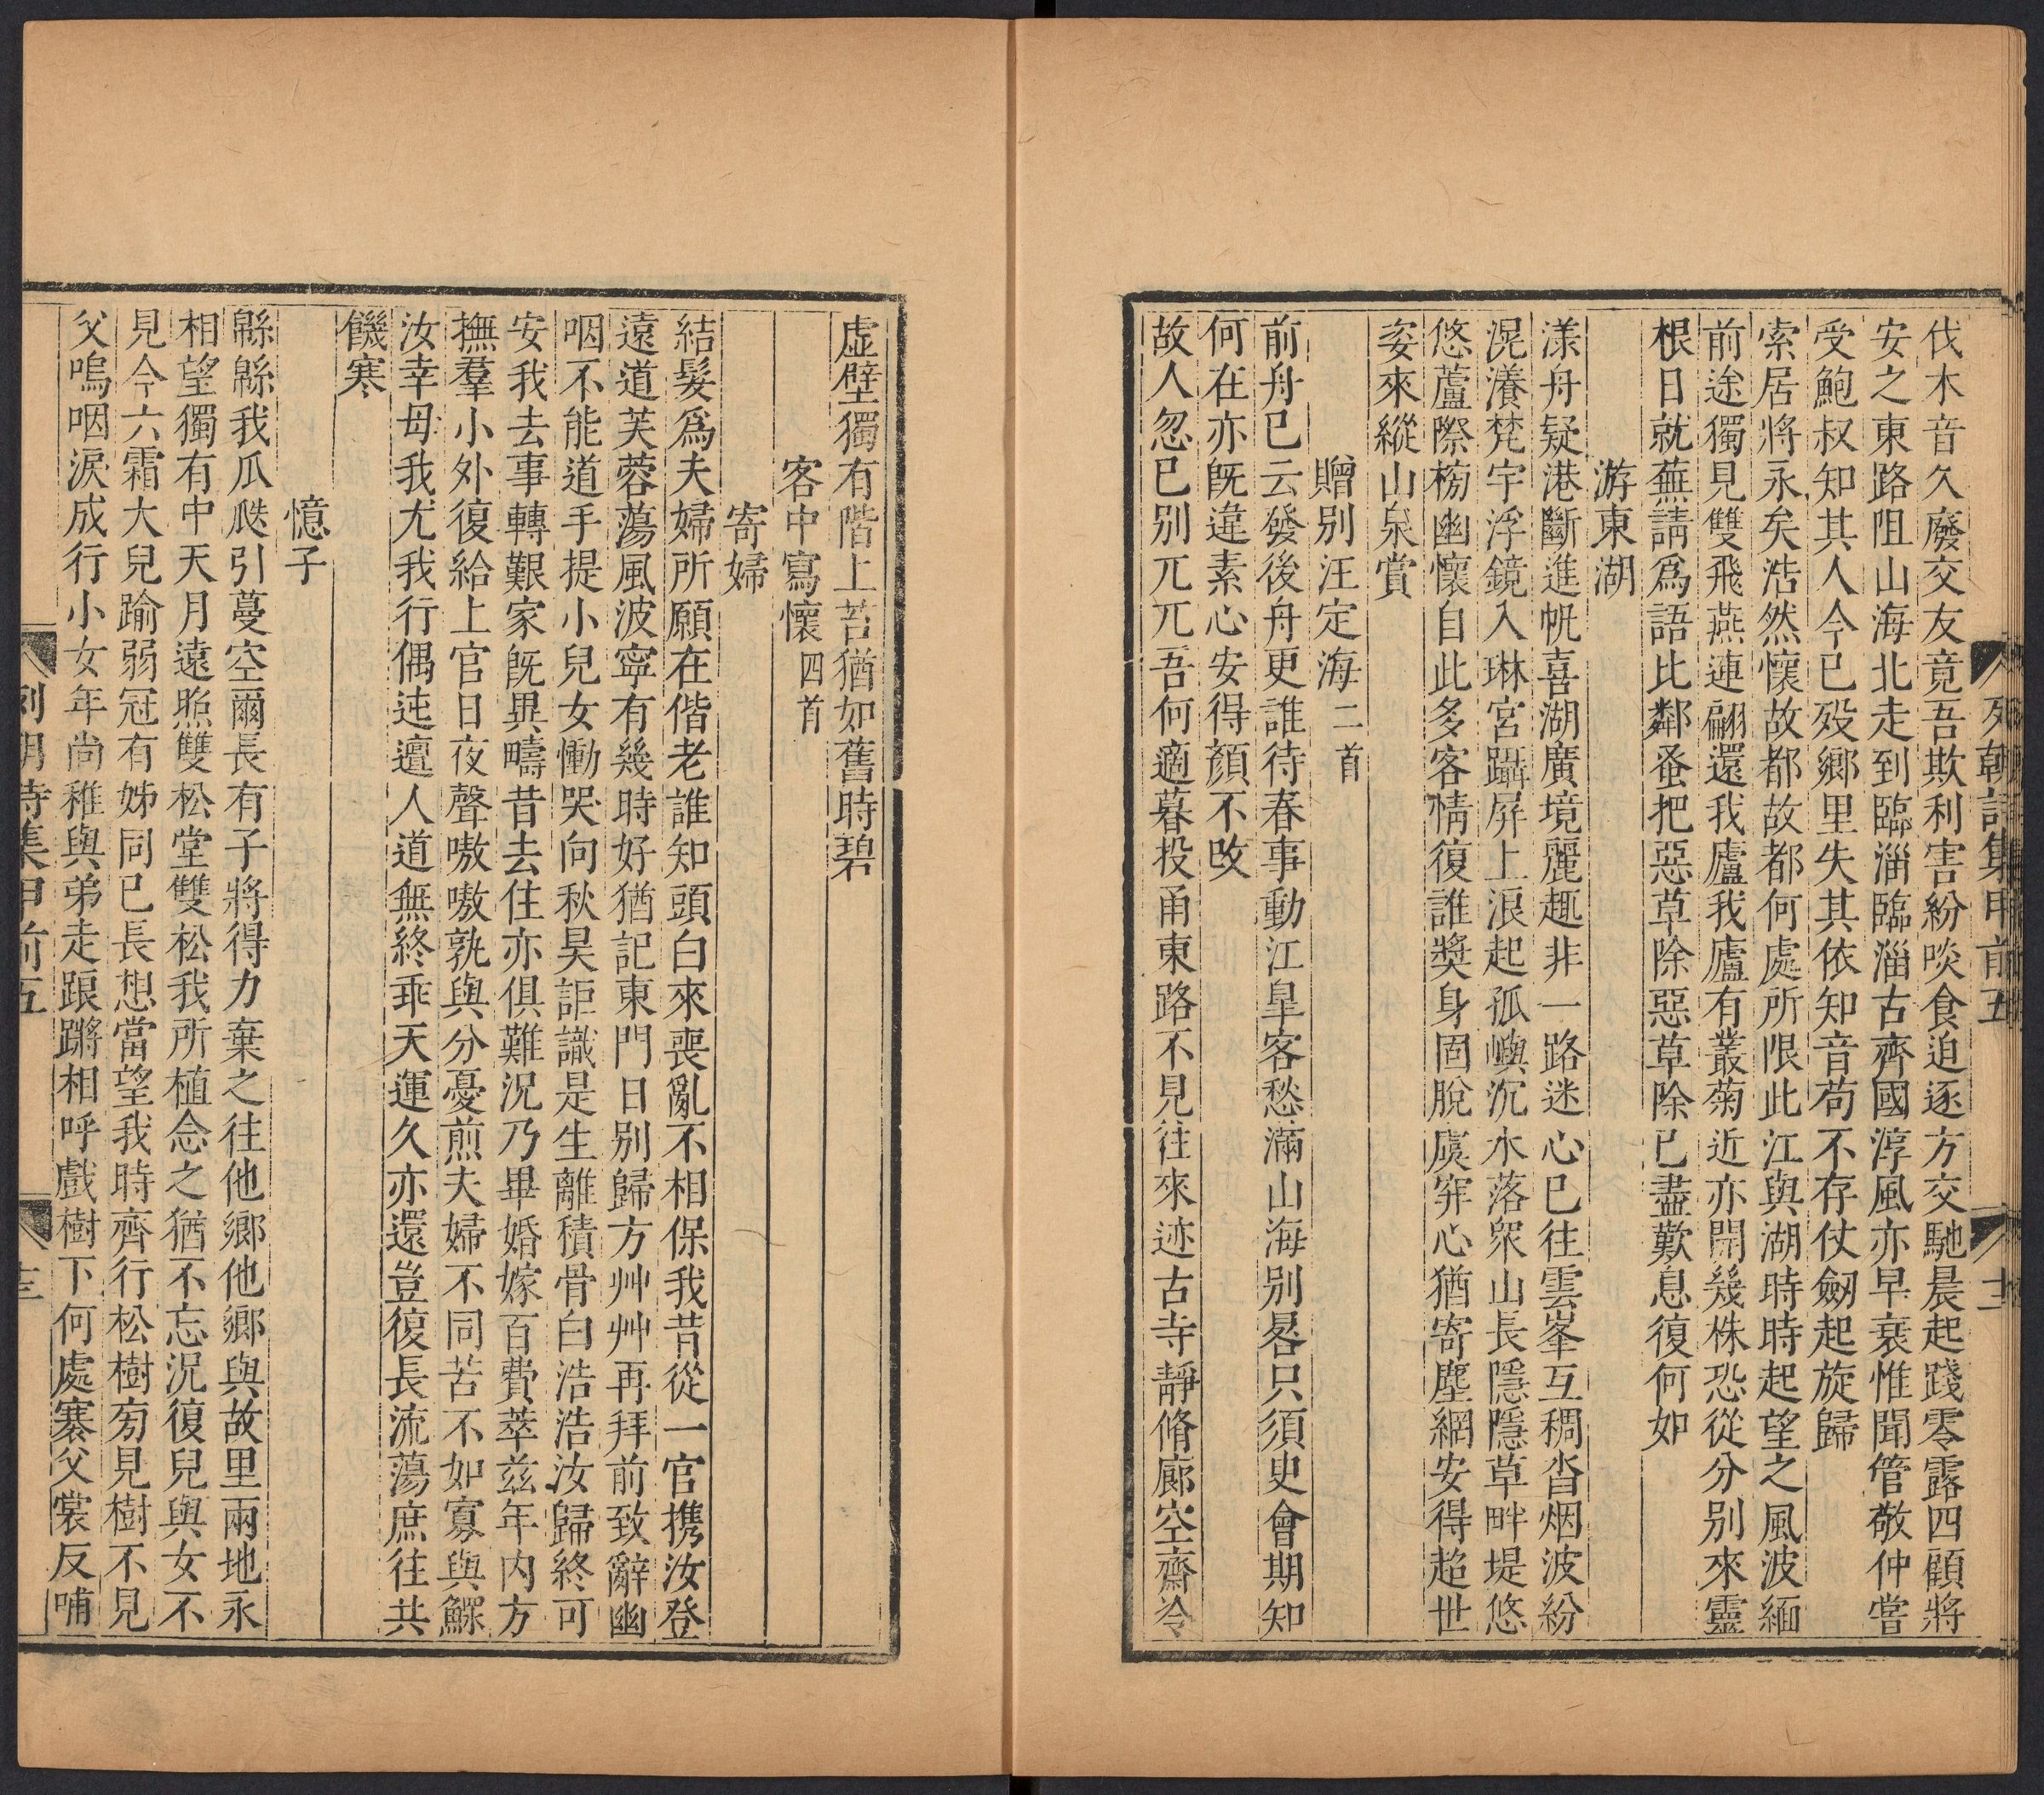 列朝詩集甲前五 十二
伐木音久廢交友竟吾欺利害紛啖食迫逐方交馳晨起踐零露四顧將
安之東路阻山海北走到臨淄臨淄古齊國淳風亦早衰惟聞管敬仲嘗
受鮑叔知其人今已歿鄉里失其依知音苟不存仗劒起旋歸
索居將永矣浩然懷故都故都何處所限此江與湖時時起望之風波緬
前途獨見雙飛燕連翩還我廬我廬有叢菊近亦開幾株恐從分别來靈
根日就蕪請爲語比鄰蚤把惡草除惡草除已盡歎息復何如
游東湖
漾舟疑港斷進帆喜湖廣境麗趣非一路迷心已往雲峯互稠沓烟波紛
滉瀁梵宇浮鏡入琳宮躡屏上浪起孤嶼沉水落衆山長隱隱草畔堤悠
悠蘆際榜幽懷自此多客情復誰奬身固脫虞穽心猶寄塵網安得超世
姿來縱山泉賞
贈别汪定海二首
前舟已云發後舟更誰待春事動江皐客愁滿山海别晷只須史會期知
何在亦旣違素心安得顔不改
故人忽已别兀兀吾何適暮投甬東路不見往來迹古寺靜脩廊空齋冷
虛壁獨有階上苔猶如舊時碧
客中寫懷四首
寄婦
結髮爲夫婦所願在偕老誰知頭白來喪亂不相保我昔從一官携汝登
遠道芙蓉蕩風波寧有幾時好猶記東門日别歸方艸艸再拜前致辭幽
咽不能道手提小兒女慟哭向秋昊詎識是生離積骨白浩浩汝歸終可
安我去事轉艱家旣異疇昔去住亦俱難況乃畢婚嫁百費萃兹年内方
撫羣小外復給上官日夜聲嗷嗷孰與分憂煎夫婦不同苦不如寡與鰥
汝幸毋我尤我行偶迍邅人道無終乖天運久亦還豈復長流蕩庶往共
饑寒
憶子
緜緜我瓜瓞引蔓空爾長有子將得力棄之往他鄉他鄉與故里兩地永
相望獨有中天月遠照雙松堂雙松我所植念之猶不忘況復兒與女不
見今六霜大兒踰弱冠有姊同已長想當望我時齊行松樹旁見樹不見
父嗚咽淚成行小女年尚稚與弟走踉蹡相呼戲樹下何處褰父裳反哺
列朝詩集甲前五 十三